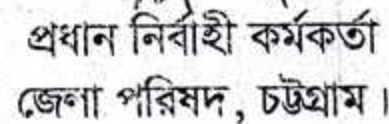 প্রধান নির্বাহী কর্মকর্তা
জেলা পরিষদ, চট্টগ্রাম।